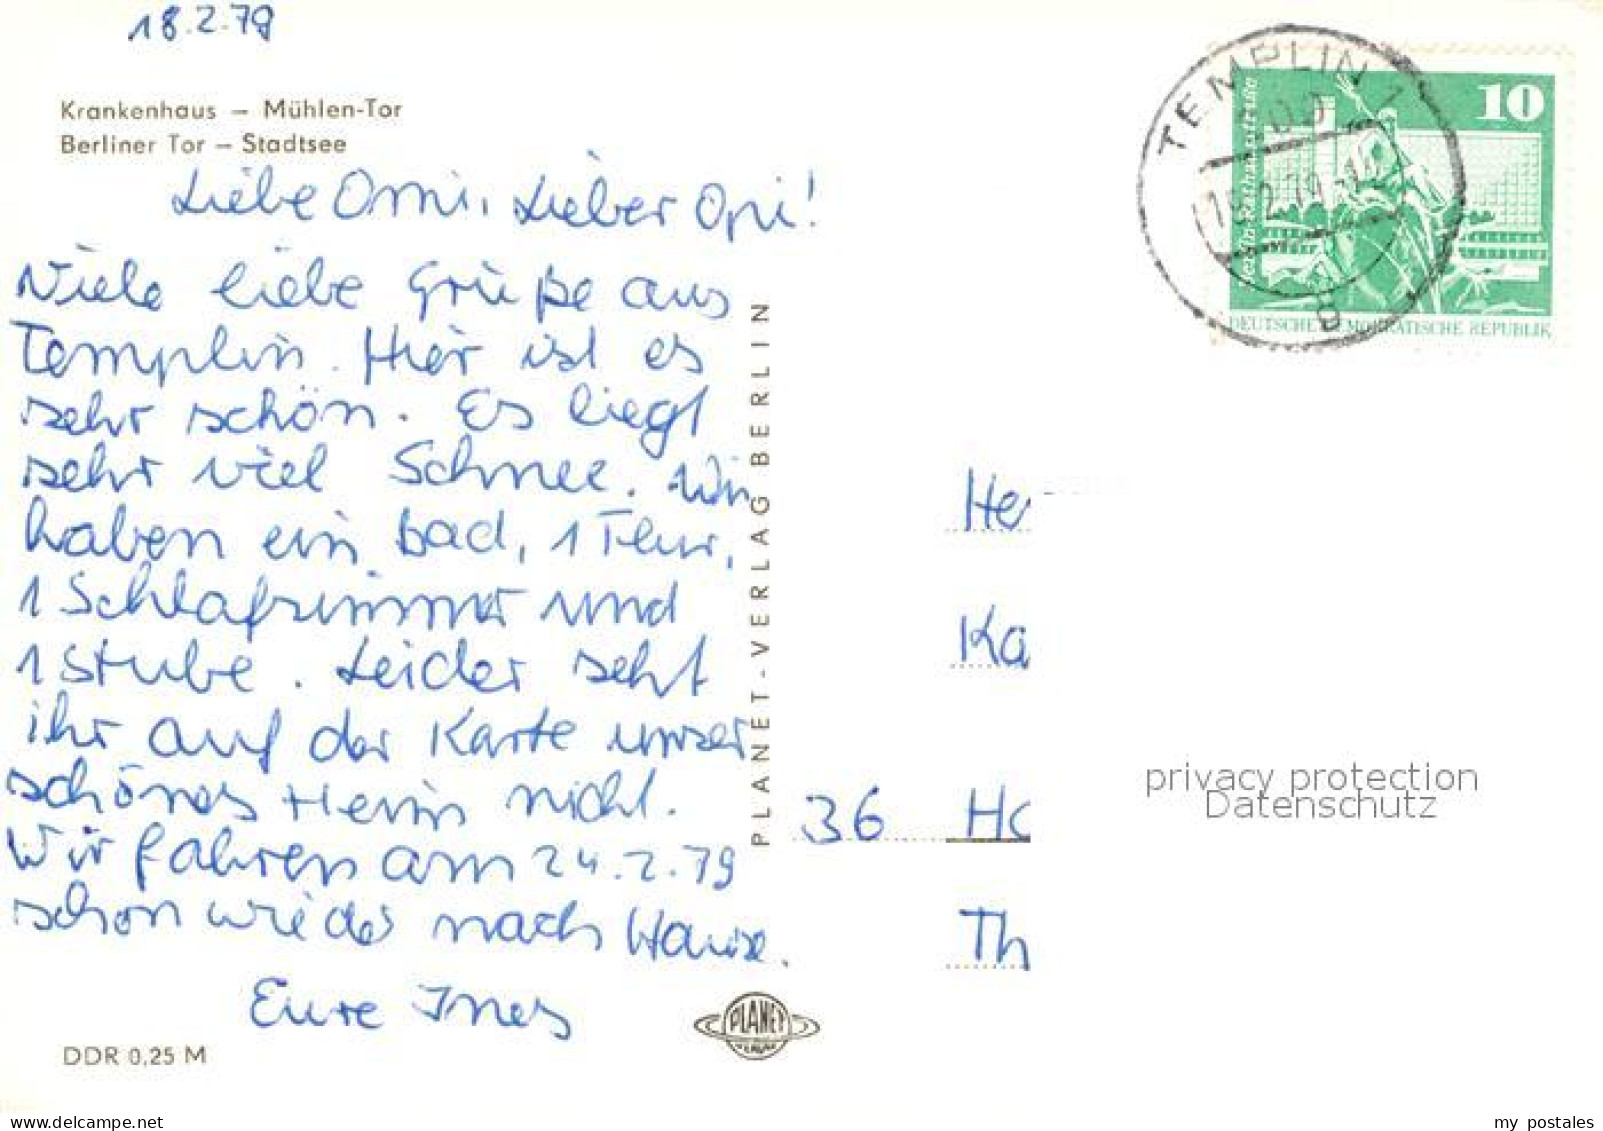 18.2.79
Krankenhaus – Mühlen-Tor
Berliner Tor – Stadtsee
Liebe Omi, Lieber Opi!
Viele liebe Grüße aus
Templin. Hier ist es
sehr schön. Es liegt
sehr viel Schnee. Wir
haben ein Bad, 1 Flur,
1 Schlafzimmer und
1 Stube. Leider seht
ihr auf der Karte unser
schönes Heim nicht.
Wir fahren am 24.2.79
schon wieder nach Hause.
Eure Ines
DDR 0,25 M
PLANET-VERLAG BERLIN
PLANET
VERLAG
TEMPLIN 1
18.2.79
B
10
DEUTSCHE DEMOKRATISCHE REPUBLIK
He
Ka
36 Ho
Th
privacy protection
Datenschutz
www.ansichtskarten-center.de
my postales